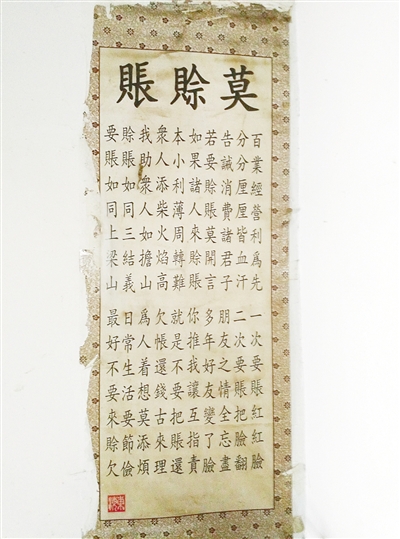 莫賒賬
百業經營利爲先
分分厘厘皆血汗
告誡消費諸君子
若要賒賬莫開言
如果諸人來賒賬
本小利薄周轉難
衆人添柴火焰高
我助衆人如擔山
賒賬如同三結義
要賬如同上梁山
一次要賬紅紅臉
二次要賬把臉翻
朋友之情全忘盡
多年好友變了臉
你推我讓互指責
就是不要把賬還
欠帳還錢古來理
爲人着想莫添煩
日常生活要節儉
最好不要來賒欠